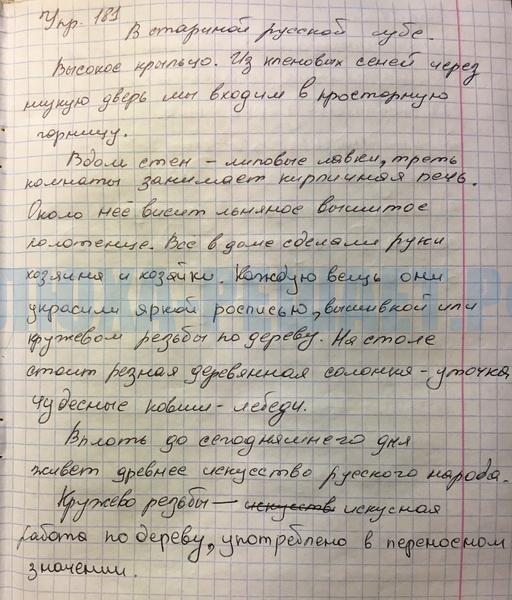 Упр. 181
В старинной русской избе.
Высокое крыльцо. Из кленовых сеней через
низкую дверь мы входим в просторную
горницу.
Вдоль стен – липовые лавки, треть
комнаты занимает кирпичная печь.
Около неё висит льняное вышитое
полотенце. Все в доме сделали руки
хозяина и хозяйки. Каждую вещь они
украсили яркой росписью, вышивкой или
кружевом резьбы по дереву. На столе
стоит резная деревянная солонка – уточка,
чудесные ковши – лебеди.
Вплоть до сегодняшнего дня
живет древнее искусство русского народа.
Кружево резьбы — искусств искусная
работа по дереву, употреблено в переносном
значении.